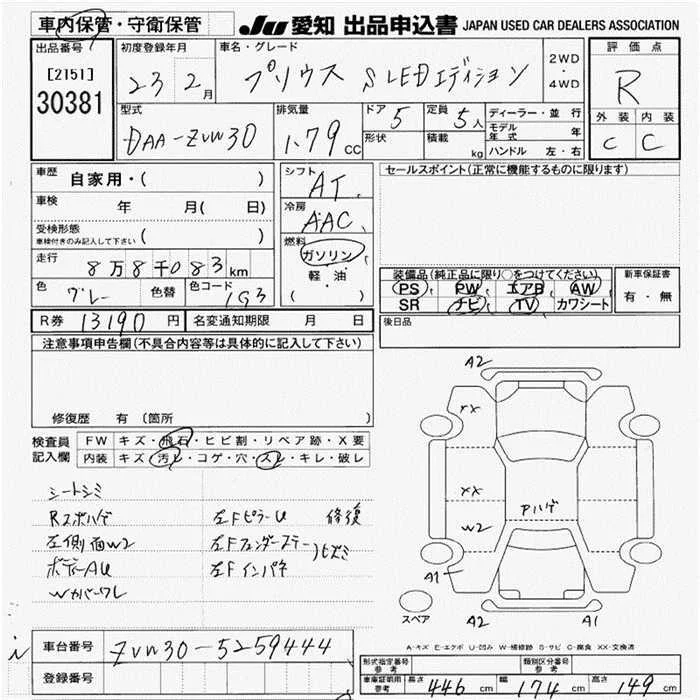 車内保管・守衛保管 JU 愛知 出品申込書 JAPAN USED CAR DEALERS ASSOCIATION
出品番号 初度登録年月 車名・グレード 評価点
[2151]
30381
23 2月 プリウス S LEDエディション 2WD・4WD R
型式 排気量 ドア 5 定員 5人 ディーラー・並行 外装 内装
DAA-ZVW30 1.79 CC 形状 積載 kg モデル年式 年 C C
ハンドル 左・右
車歴 自家用・( ) シフト AT セールスポイント(正常に機能するものに限ります)
車検 年 月( 日) 冷房 AAC
受検形態 ( )
車検付きのみ記入して下さい
燃料 ガソリン・軽油・( )
走行 8万8千083km
色 グレー 色替 色コード 1G3
装備品(純正品に限り○をつけてください) 新車保証書
PS PW エアB AW 有・無
SR ナビ TV カワシート
R券 13190円 名変通知期限 月 日 後日品
注意事項申告欄(不具合内容等は具体的に記入して下さい)
修復歴 有(箇所 )
検査員記入欄 FW キズ・飛石・ヒビ割・リペア跡・X要
内装 キズ・汚レ・コゲ・穴・スレ・キレ・破レ
シートシミ
Rスポハゲ 左FピラーU 修復
左側面W2 左Fフェンダーステー ヒズミ
ボディーAU 左Fインパネ
Wカバーワレ
A2
XX
XX
W2
Pハゲ
A1
スペア A2 A1
A-キズ E-エクボ U-凹み W-補修跡 S-サビ C-腐食 XX-交換済
車台番号 ZVW30-5259444
登録番号
形式指定番号 参考 類別区分番号 参考
車庫証明用 参考 長さ 446cm 幅 174cm 高さ 149cm